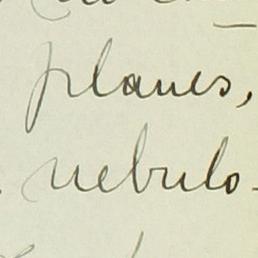 planes,
nebulo-